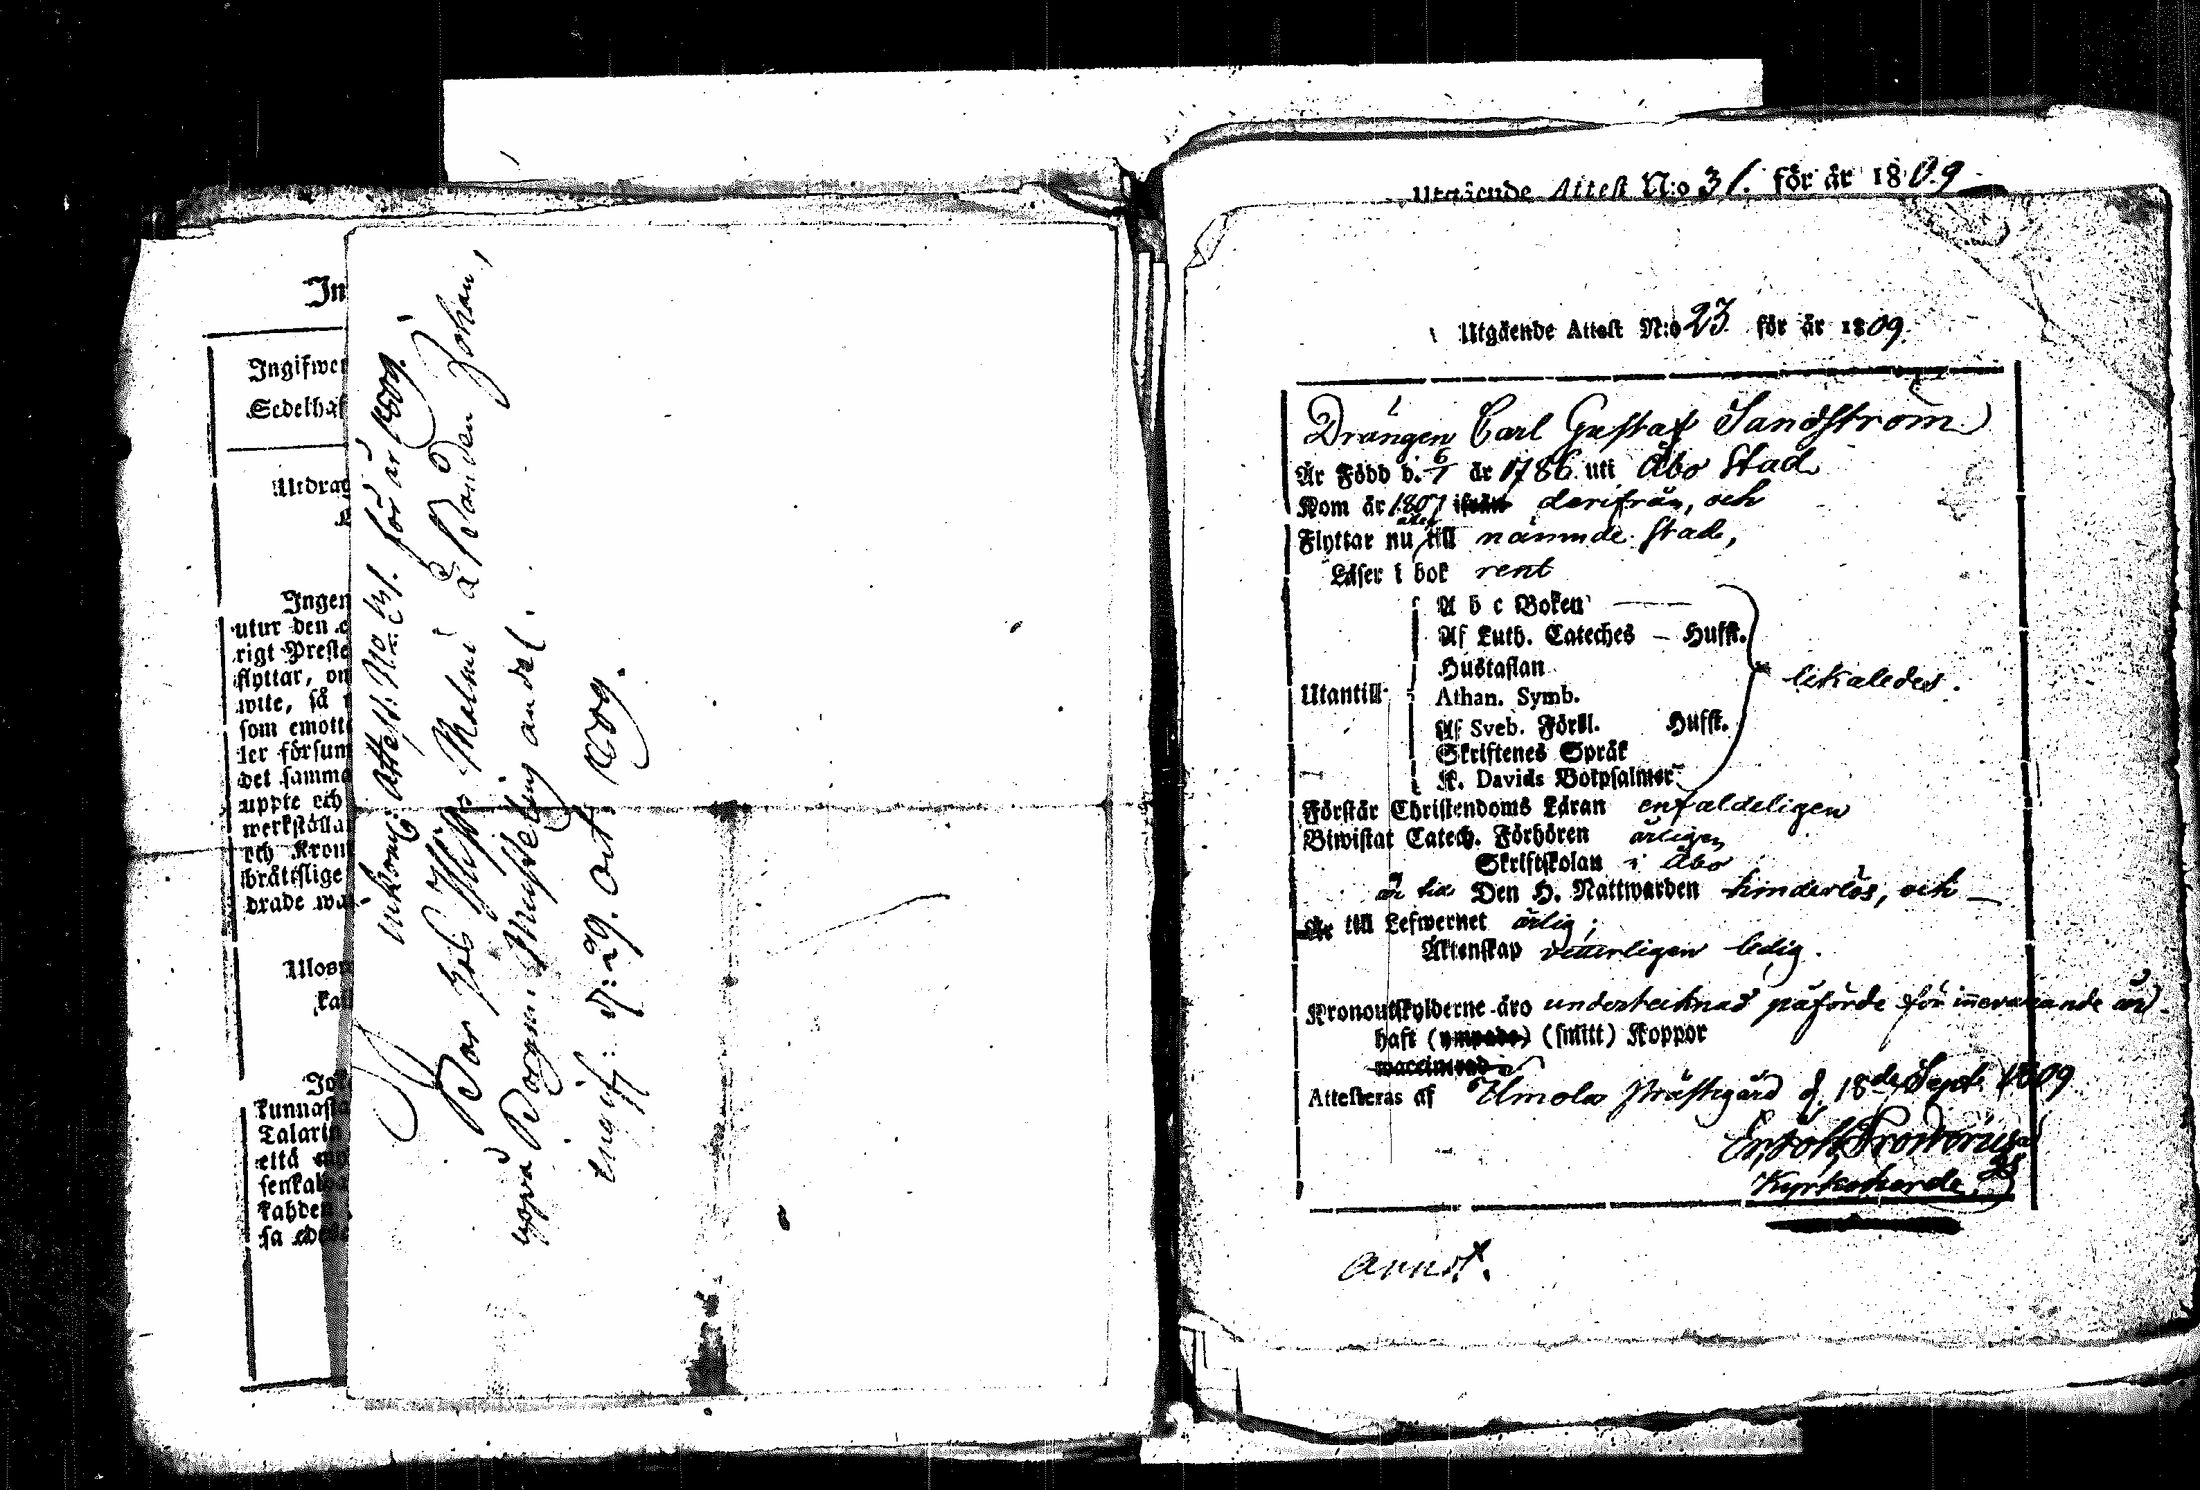 In
Ingifwer
Sedelhaf
Utdrag
Ingen
utur den
rigt Preste
flyttar, om
wite, så
som emott
ler försum
det samma
uppte och
werkställa
och Kron
brättslige
drade wa
kunnasta
Talari
että
senkal
kahden
sa
Inkomg: Attest: No 31. för år 1809.
Bor hos Malmi å Bonden Johan,
uppå andel.
d: 29. Oct: 1809.
Utgående Attest N:o 31. för år 1809
Utgående Attest N:o 23 för år 1809.
Drängen Carl Gustaf Sandström
Är Född d. 6/1 år 1786 uti Åbo Stad
Kom år 1807 ifrån derifrån, och
Flyttar nu åter till nämnde Stad,
Läser i bok rent
A b c Boken
Af Luth. Cateches – Husst.
Hustaflan
Utantill Athan. Symb. likaledes.
Af Sveb. Förkl. Husst.
Skriftenes Språk
K. Davids Botpsalmer
Förstår Christendoms Läran enfaldeligen
Biwistat Catech. Förhören årligen
Skriftskolan i Åbo
Den H. Nattwarden hinderlös, och
Är till Lefwernet ärlig;
Äktenskap vetterligen ledig.
Kronoutskylderne äro undertecknad påförde för innevarande år.
haft (ympade) (smitt) Koppor
waccinerad
Attesteras af Ulmola Prästegård d. 18de Sept. 1809
Kyrkoherde.
Annot.